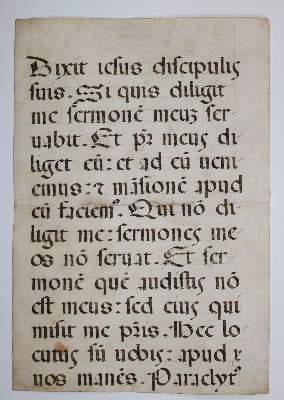 Dixit iesus discipulis
suis. Si quis diligit
me sermonē meuʒ ser
uabit. Et pr̄ meus di
liget eū: et ad eū ueni
emus: ⁊ māsionē apud
eū faciemꝰ. Qui nō di
ligit me: sermones me
os nō seruat. Et ser
monē quē audistis nō
est meus: sed eius qui
misit me pr̄is. Hec lo
cutus sū uobis: apud
uos manēs. Paraclytꝰ